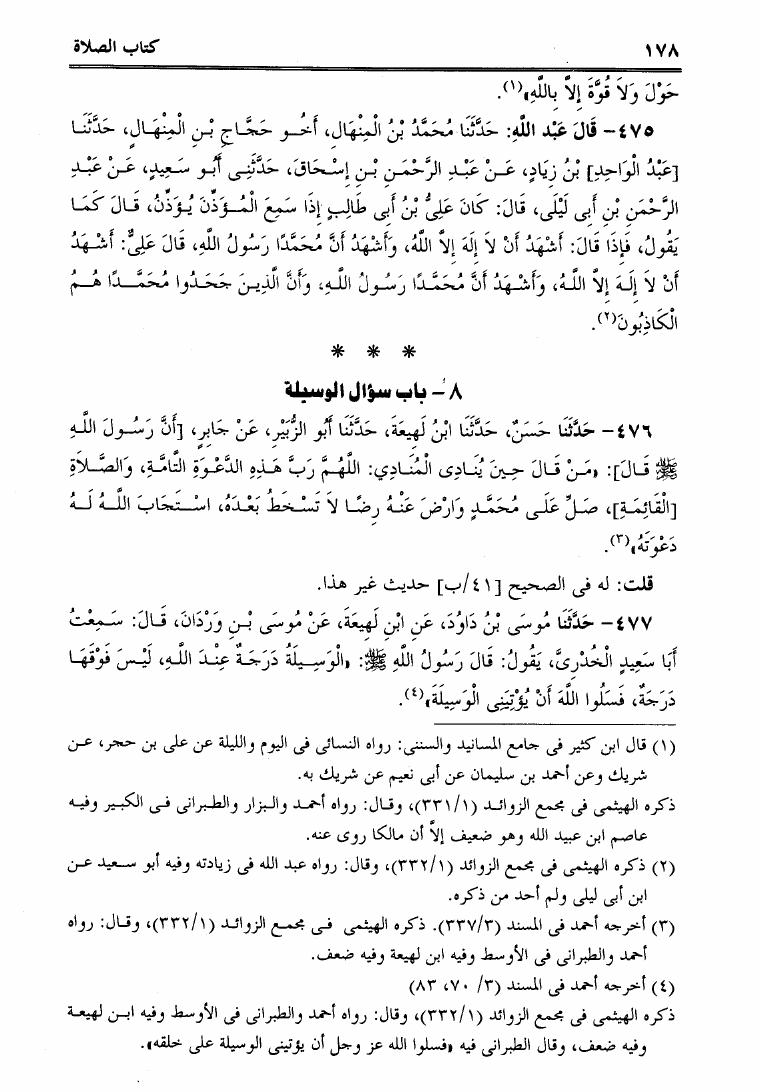 ١٧٨ كتاب الصلاة
حَوْلَ وَلاَ قُوَّةَ إِلاَّ بِاللَّهِ»(١).
٤٧٥- قَالَ عَبْد اللَّهِ: حَدَّثَنَا مُحَمَّدُ بْنُ الْمِنْهَالِ، أَخُو حَجَّاجِ بْنِ الْمِنْهَالِ، حَدَّثَنَا
[عَبْدُ الْوَاحِدِ] بْنُ زِيَادٍ، عَنْ عَبْدِ الرَّحْمَنِ بْنِ إِسْحَاقَ، حَدَّثَنِى أَبُو سَعِيدٍ، عَنْ عَبْدِ
الرَّحْمَنِ بْنِ أَبِى لَيْلَى، قَالَ: كَانَ عَلِىُّ بْنُ أَبِى طَالِبٍ إِذَا سَمِعَ الْمُؤَذِّنَ يُؤَذِّنُ، قَالَ كَمَا
يَقُولُ، فَإِذَا قَالَ: أَشْهَدُ أَنْ لاَ إِلَهَ إِلاَّ اللَّهُ، وَأَشْهَدُ أَنَّ مُحَمَّدًا رَسُولُ اللَّهِ، قَالَ عَلِىٌّ: أَشْهَدُ
أَنْ لاَ إِلَهَ إِلاَّ اللَّهُ، وَأَشْهَدُ أَنَّ مُحَمَّدًا رَسُولُ اللَّهِ، وَأَنَّ الَّذِينَ جَحَدُوا مُحَمَّدًا هُمُ
الْكَاذِبُونَ(٢).
* * *
٨- باب سؤال الوسيلة
٤٧٦- حَدَّثَنَا حَسَنٌ، حَدَّثَنَا ابْنُ لَهِيعَةَ، حَدَّثَنَا أَبُو الزُّبَيْرِ، عَنْ جَابِرٍ، [أَنَّ رَسُولَ اللَّهِ
ﷺ قَالَ]: «مَنْ قَالَ حِينَ يُنَادِى الْمُنَادِي: اللَّهُمَّ رَبَّ هَذِهِ الدَّعْوَةِ التَّامَّةِ، وَالصَّلاَةِ
[الْقَائِمَةِ]، صَلِّ عَلَى مُحَمَّدٍ وَارْضَ عَنْهُ رِضًا لاَ تَسْخَطُ بَعْدَهُ، اسْتَجَابَ اللَّهُ لَهُ
دَعْوَتَهُ»(٣).
قلت: له فى الصحيح [٤١/ب] حديث غير هذا.
٤٧٧- حَدَّثَنَا مُوسَى بْنُ دَاوُدَ، عَنِ ابْنِ لَهِيعَةَ، عَنْ مُوسَى بْنِ وَرْدَانَ، قَالَ: سَمِعْتُ
أَبَا سَعِيدٍ الْخُدْرِىَّ، يَقُولُ: قَالَ رَسُولُ اللَّهِ ﷺ: «الْوَسِيلَةُ دَرَجَةٌ عِنْدَ اللَّهِ، لَيْسَ فَوْقَهَا
دَرَجَةٌ، فَسَلُوا اللَّهَ أَنْ يُؤْتِيَنِى الْوَسِيلَةَ»(٤).
(١) قال ابن كثير فى جامع المسانيد والسنن: رواه النسائى فى اليوم والليلة عن على بن حجر، عن
شريك وعن أحمد بن سليمان عن أبى نعيم عن شريك به.
ذكره الهيثمى فى مجمع الزوائد (٣٣١/١)، وقال: رواه أحمد والبزار والطبرانى فى الكبير وفيه
عاصم ابن عبيد الله وهو ضعيف إلاَّ أن مالكا روى عنه.
(٢) ذكره الهيثمى فى مجمع الزوائد (٣٣٢/١)، وقال: رواه عبد الله فى زيادته وفيه أبو سعيد عن
ابن أبى ليلى ولم أحد من ذكره.
(٣) أخرجه أحمد فى المسند (٣٣٧/٣). ذكره الهيثمى فى مجمع الزوائد (٣٣٢/١)، وقال: رواه
أحمد والطبرانى فى الأوسط وفيه ابن لهيعة وفيه ضعف.
(٤) أخرجه أحمد فى المسند (٣/ ٧٠، ٨٣)
ذكره الهيثمى فى مجمع الزوائد (٣٣٢/١)، وقال: رواه أحمد والطبرانى فى الأوسط وفيه ابن لهيعة
وفيه ضعف، وقال الطبرانى فيه «فسلوا الله عز وجل أن يؤتينى الوسيلة على خلقه».